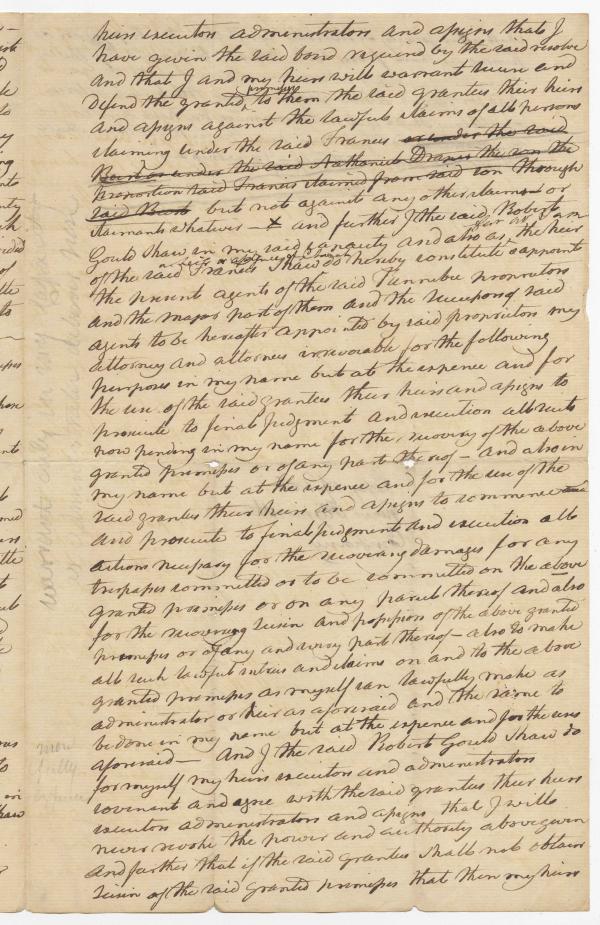 heirs executors administrators and assigns that I
have given the said bond required by the said resolve
and that I and my heirs will warrant secure and
defend the granted premises to them the said grantees their heirs
and assigns against the lawful claims of all persons
claiming under the said Francis or under the said
Bart or under the said Nathaniel Draper the son the
proportion said Francis claimed from said son through
said Bart but not against any other claims or
claimants whatever — X and further I the said Robert
Gould Shaw in my said capacity and also as the heir
of the said Francis Shaw do hereby constitute & appoint
the present agents of the said Kennebec proprietors
and the major part of them and the successors of said
agents to be hereafter appointed by said proprietors my
attorney and attornies irrevocable for the following
purposes in my name but at the expence and for
the use of the said grantees their heirs and assigns to
prosecute to final Judgment and execution all suits
now pending in my name for the recovery of the above
granted premises or of any part thereof — and also in
my name but at the expence and for the use of the
said grantees their heirs and assigns to commence
and prosecute to final judgments and execution all
actions necessary for the recovering damages for any
trespasses committed or to be committed on the above
granted premises or on any parcel thereof and also
for the recovering seisin and possession of the above granted
premises or of any and every part thereof — also to make
all such lawful entries and claims on and to the above
granted premises as myself can lawfully make as
administrator or heir as aforesaid and the same to
be done in my name but at the expence and for the uses
aforesaid — And I the said Robert Gould Shaw do
for myself my heirs executors and administrators
covenant and agree with the said grantees their heirs
executors administrators and assigns that I will
never revoke the power and authority above given
and further that if the said grantees shall not obtain
seisin of the said granted premises that then my heirs